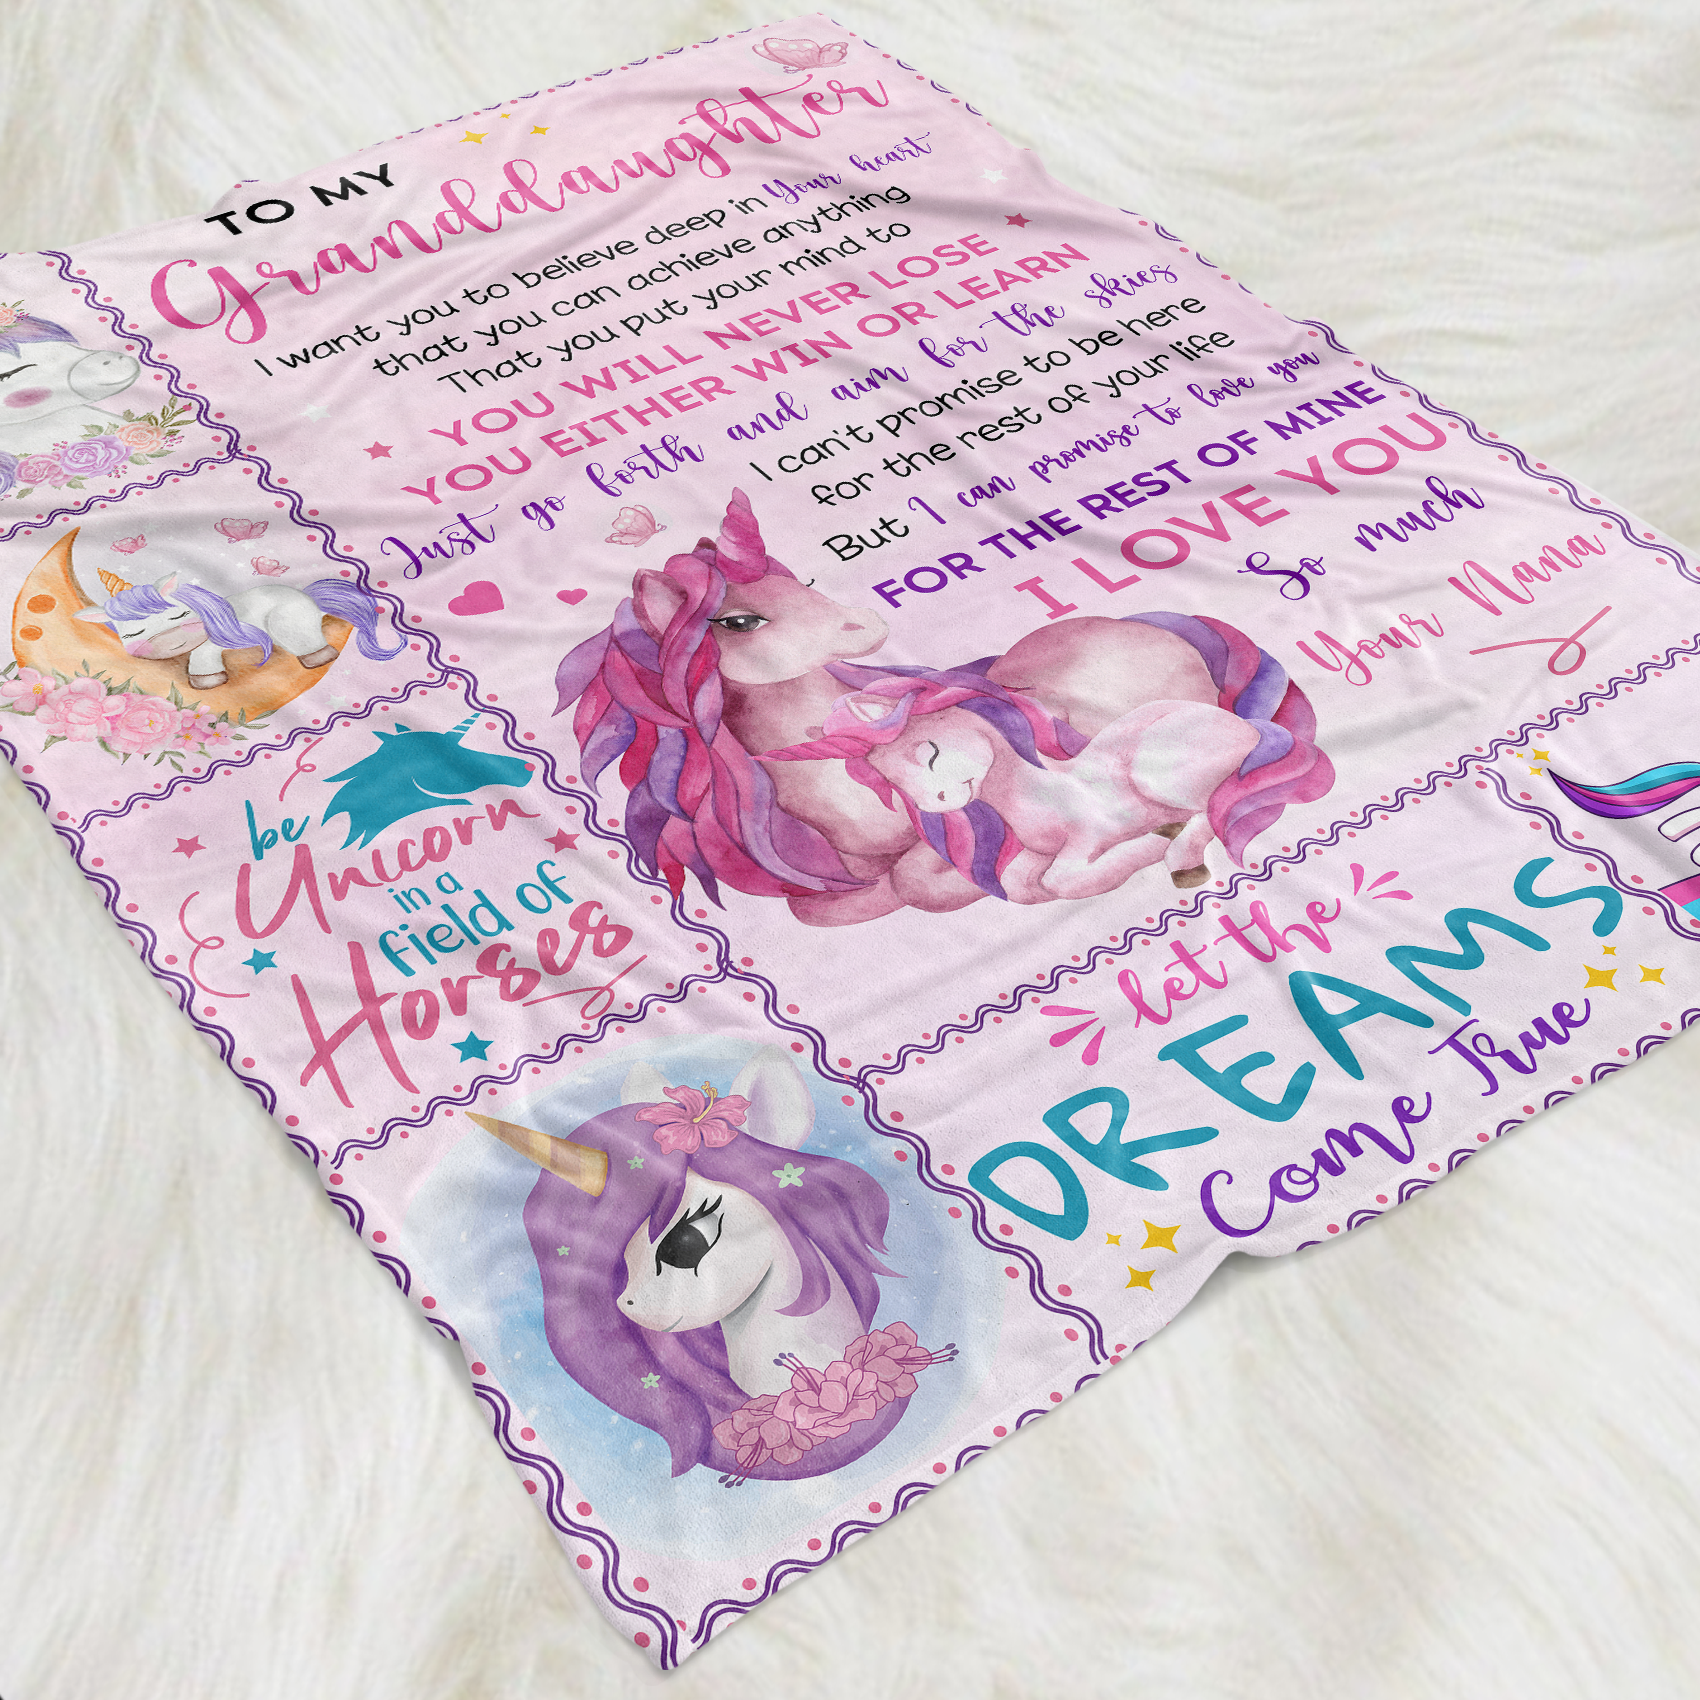 TO MY
Granddaughter
I want you to believe deep in Your heart
that you can achieve anything
That you put your mind to
YOU WILL NEVER LOSE
YOU EITHER WIN OR LEARN
Just go forth and aim for the skies
I can't promise to be here
for the rest of your life
But I can promise to love you
FOR THE REST OF MINE
I LOVE YOU
So much
Your Nana
be
Unicorn
in a
field of
Horses
let the
DREAMS
Come True